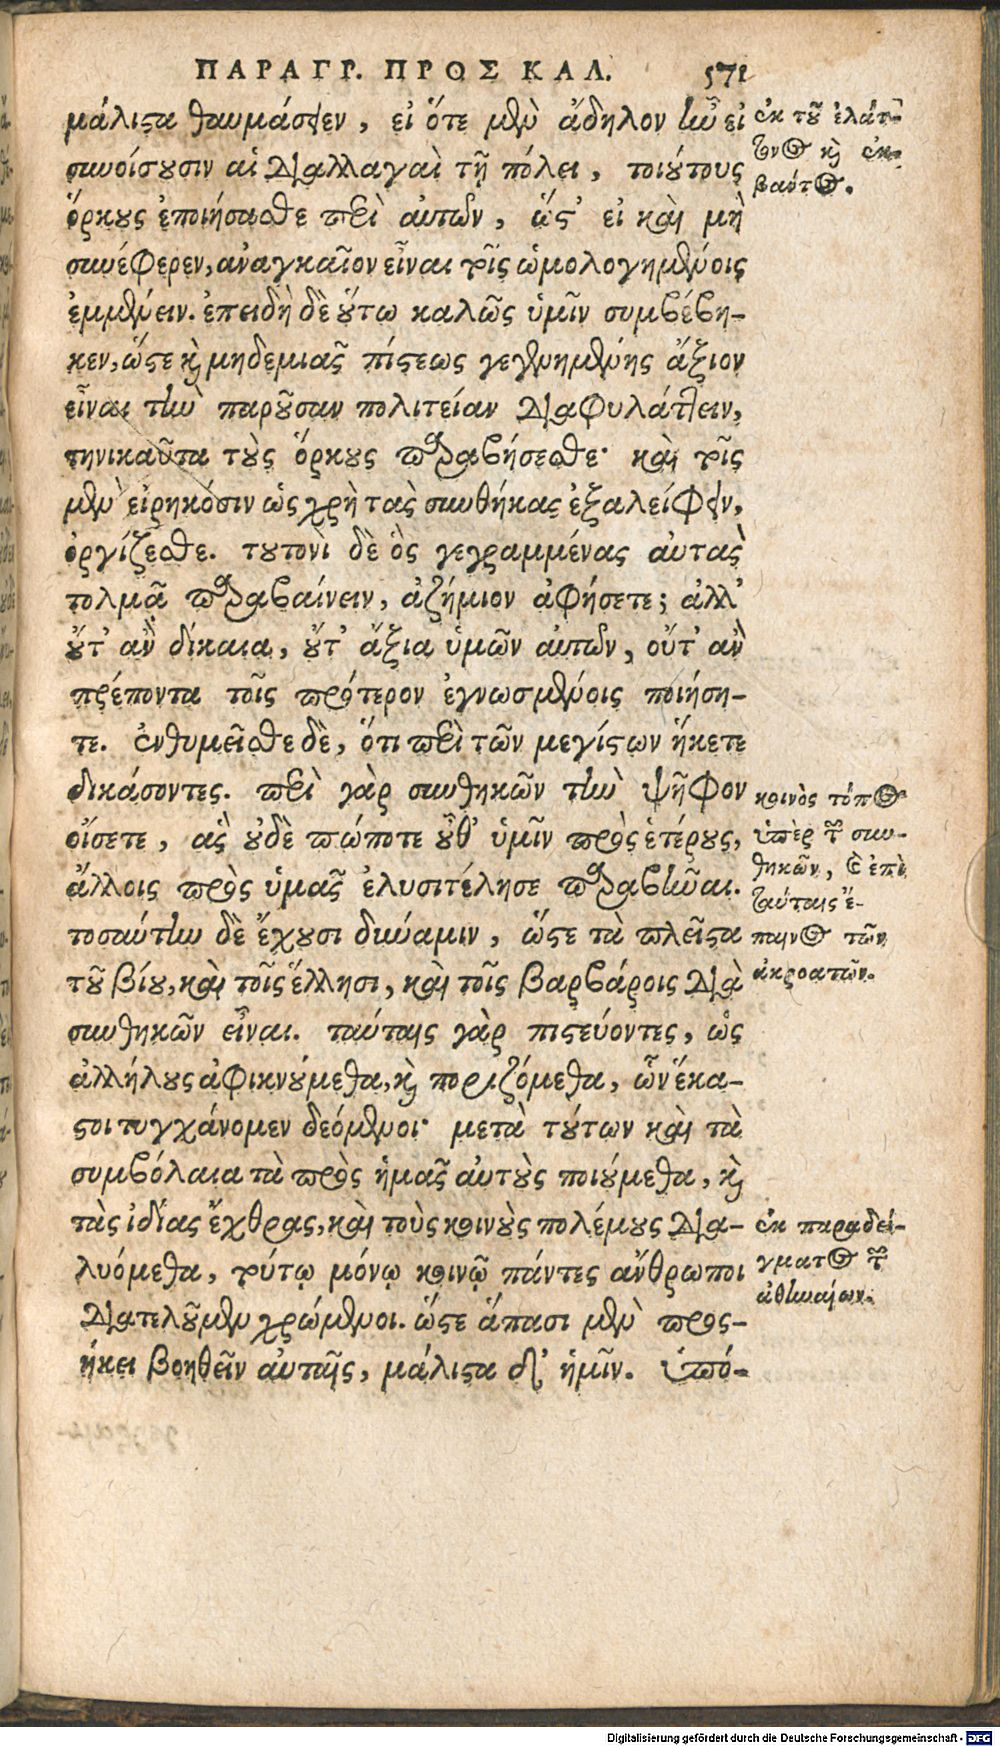 ΠΑΡΑΓΡ. ΠΡΟΣ ΚΑΛ. 571
μάλιϛα θαυμάσειεν, εἰ ὅτε μὲν ἄδηλον ἦν εἰ
συνοίσουσιν αἱ διαλλαγαὶ τῇ πόλει, τοιούτους
ὅρκους ἐποιήσασθε περὶ αὐτῶν, ὥϛ' εἰ καὶ μὴ
συνέφερεν, ἀναγκαῖον εἶναι τοῖς ὡμολογημένοις
ἐμμένειν. ἐπειδὴ δὲ οὕτω καλῶς ὑμῖν συμβέβη-
κεν, ὥϛε καὶ μηδεμιᾶς πίϛεως γεγενημένης ἄξιον
εἶναι τὴν παροῦσαν πολιτείαν διαφυλάττειν,
τηνικαῦτα τοὺς ὅρκους παραβήσεσθε· καὶ τοῖς
μὲν εἰρηκόσιν ὡς χρὴ τὰς συνθήκας ἐξαλείφειν,
ὀργίζεσθε. τουτονὶ δὲ ὃς γεγραμμένας αὐτὰς
τολμᾷ παραβαίνειν, ἀζήμιον ἀφήσετε; ἀλλ'
οὔτ' ἂν δίκαια, οὔτ' ἄξια ὑμῶν αὐτῶν, οὔτ' ἂν
πρέποντα τοῖς πρότερον ἐγνωσμένοις ποιήση-
τε. ἐνθυμεῖσθε δὲ, ὅτι περὶ τῶν μεγίϛων ἥκετε
δικάσοντες. περὶ γὰρ συνθηκῶν τὴν ψῆφον
οἴσετε, ἃς οὐδὲ πώποτε οὔθ' ὑμῖν πρὸς ἑτέρους,
ἄλλοις πρὸς ὑμᾶς ἐλυσιτέλησε παραβῆναι.
τοσαύτην δὲ ἔχουσι δύναμιν, ὥϛε τὰ πλεῖϛα
τοῦ βίου, καὶ τοῖς ἕλλησι, καὶ τοῖς βαρβάροις διὰ
συνθηκῶν εἶναι. ταύταις γὰρ πιϛεύοντες, ὡς
ἀλλήλους ἀφικνούμεθα, καὶ ποριζόμεθα, ὧν ἕκα-
ϛοι τυγχάνομεν δεόμενοι· μετὰ τούτων καὶ τὰ
συμβόλαια τὰ πρὸς ἡμᾶς αὐτοὺς ποιούμεθα, καὶ
τὰς ἰδίας ἔχθρας, καὶ τοὺς κοινοὺς πολέμους δια-
λυόμεθα, τούτῳ μόνῳ κοινῷ πάντες ἄνθρωποι
διατελοῦμεν χρώμενοι. ὥϛε ἅπασι μὲν προς-
ήκει βοηθεῖν αὐταῖς, μάλιϛα δ' ἡμῖν. ὑπό-
ἐκ τοῦ ἐλάτ-
τονος καὶ ἐκ-
βάντος.
κοινὸς τόπος
ὑπὲρ τῶν συν-
θηκῶν, καὶ ἐπὶ
ταύταις ἔ-
παινος τῶν
ἀκροατῶν.
ἐκ παραδεί-
γματος τῶν
ἀθηναίων.
Digitalisierung gefördert durch die Deutsche Forschungsgemeinschaft - DFG